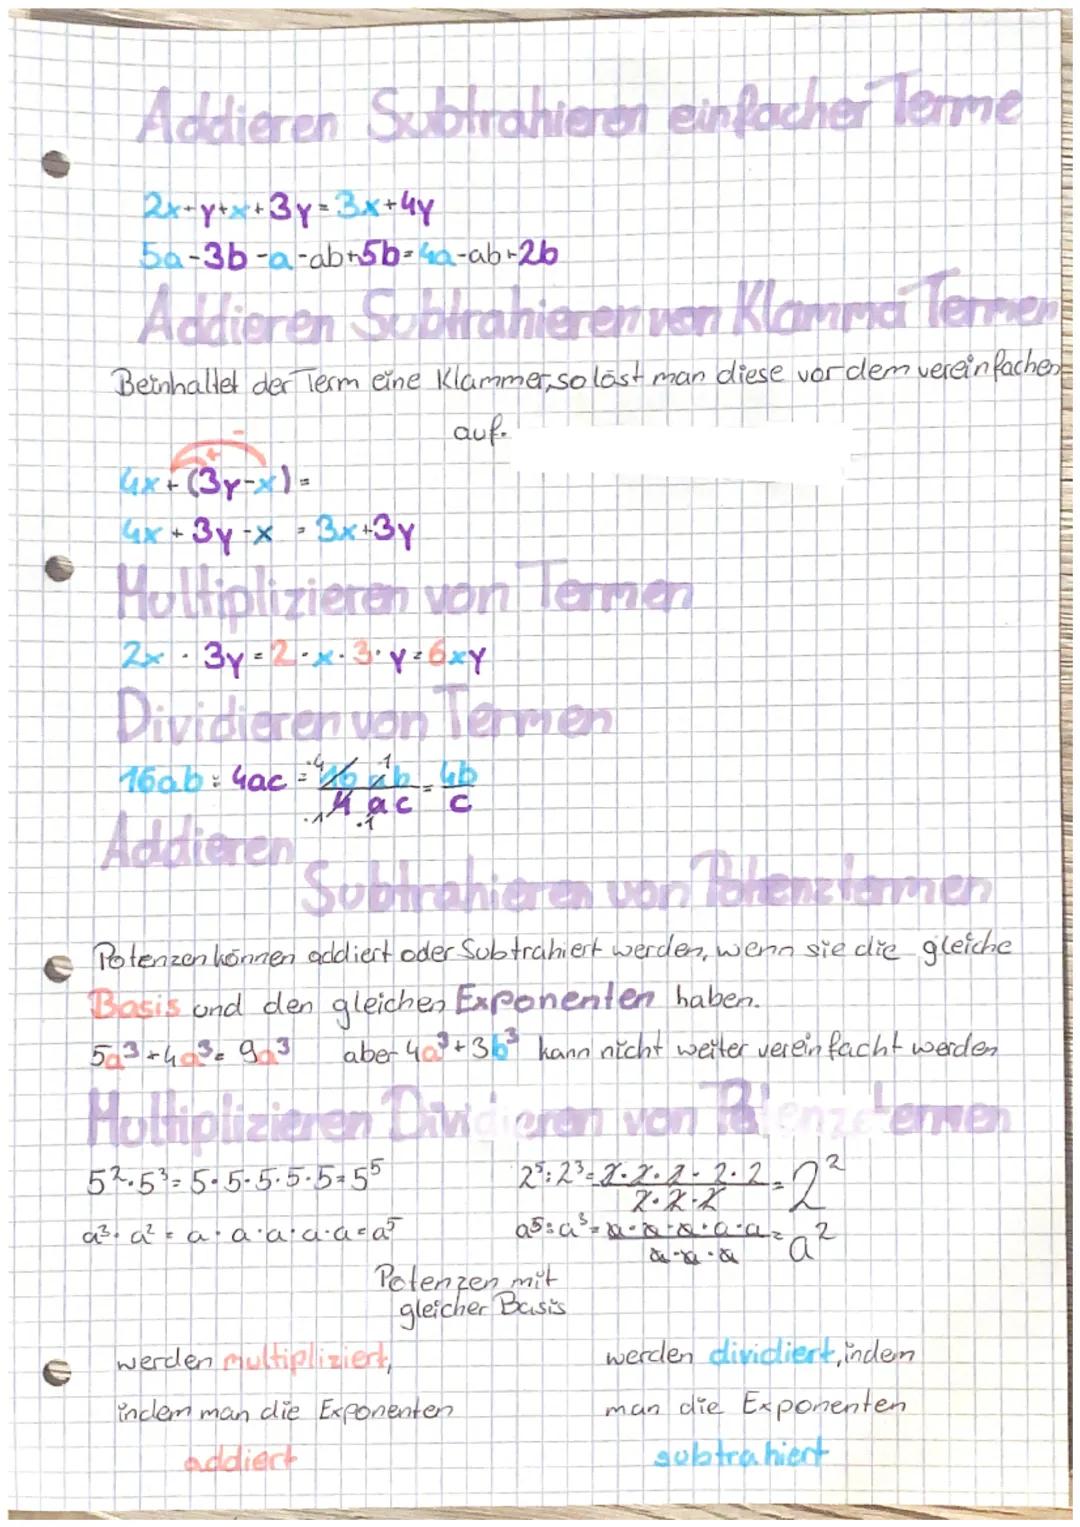 Addieren Subtrahieren einfacher Terme
2x+y+x+3y=3x+4y
5a-3b-a-ab+5b=4a-ab+2b
Addieren Subtrahieren von Klamma Termen
Beinhaltet der Term eine Klammer, so löst man diese vor dem vereinfachen
auf.
4x+(3y-x)=
4x+3y-x = 3x+3y
Multiplizieren von Termen
2x · 3y=2·x·3·y=6xy
Dividieren von Termen
16ab:4ac = 16ab/4ac = 4b/c
Addieren
Subtrahieren von Potenztermen
Potenzen können addiert oder Subtrahiert werden, wenn sie die gleiche
Basis und den gleichen Exponenten haben.
5a³+4a³=9a³ aber 4a³+3b³ kann nicht weiter vereinfacht werden
Multiplizieren Dividieren von Potenztermen
5²·5³=5·5·5·5·5=5⁵ 2⁵:2³=2·2·2·2·2/2·2·2=2²
a³·a²=a·a·a·a·a=a⁵ a⁵:a³=a·a·a·a·a/a·a·a=a²
Potenzen mit
gleicher Basis
werden multipliziert,
indem man die Exponenten
addiert
werden dividiert, indem
man die Exponenten
subtrahiert